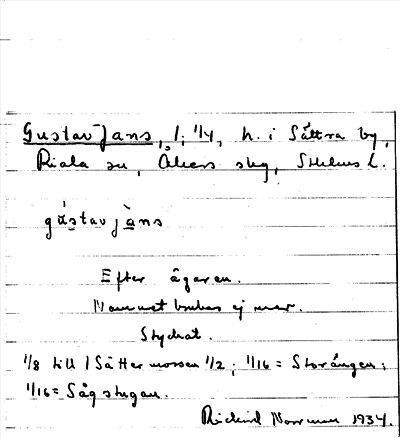 Gustav Jans, 1; 1/4, h. i Sättra by,
Riala sn, Åkers skg, Sthlms l.
gústav jàns
Efter ägaren.
Namnet brukas ej mer.
Styckat.
1/8 till 1 Sättermossen 1/2; 1/16 = Storängen;
1/16 = Sågstugan.
Rickard Norrman 1934.